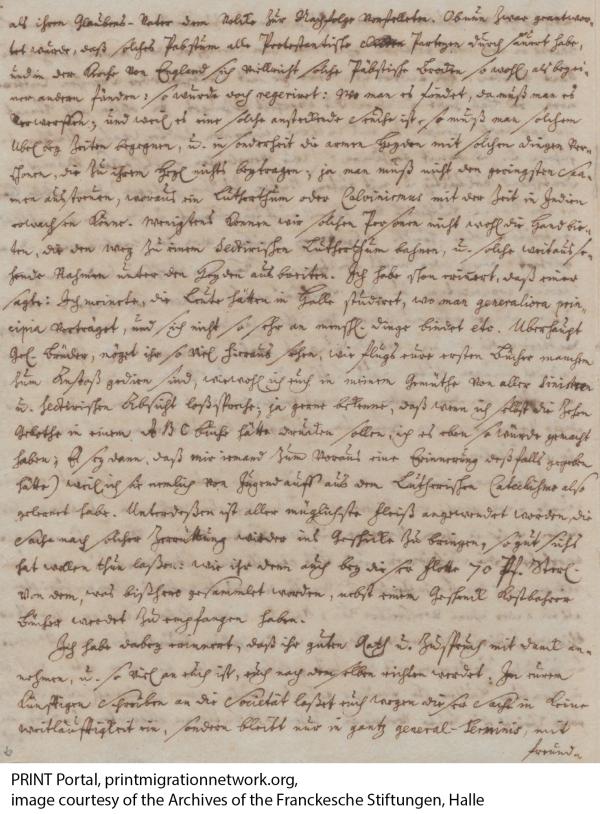 als ihren Glaubens-Vater dem Volcke zur Nachfolge vorstelleten. Ob nun zwar geantwor-
tet wurde, daß solches Pabstum alle Protestantische Parteyen durchsäuert habe,
und in der Kirche von England sich vielleicht solche Päbstische Brocken so wohl, als bey ei-
ner andern fünden: so wurde doch regeriret: Wo man es findet, da muß man es
verwerffen; und weil es eine solche ansteckende Seuche ist, so muß man solchem
Übel bey Zeiten begegnen, u. in sonderheit die armen Heyden mit solchen dingen ver-
schonen, die zu ihrem Heyl nichts beytragen; ja man muß nicht den geringsten Saa-
men ausstreuen, woraus ein Lutherthum oder Calvinismus mit der Zeit in Indien
erwachsen könne. Wenigstens können wir solchen Personen nicht wohl die Hand bie-
ten, die den Weg zu einem Sectirischen Lutherthum bahnen, u. solche weit aus se-
hende Nahmen unter den Heyden ausbreiten. Ich habe schon erinnert, daß einer
sagte: Ich meinete, die Leute hätten in Halle studiret, wo man generaliora prin-
cipia vorträget, und sich nicht so sehr an menschl. dinge bindet etc. Überhaupt
Gel. Brüder, möget ihr so viel hieraus sehen, wie flugs eure ersten Bücher manchen
zum Anstoß gedien sind, wiewohl ich euch in meinem Gemüthe von aller
u. Sectirischen Absicht loßspreche; ja gerne bekenne, daß wenn ich selbst die Zehen
Gebothe in einem A B C buche hätte drucken sollen, ich es eben so würde gemacht
haben; Es sey dann, daß mir iemand zum voraus eine Erinnerung deßfalls gegeben
hätte) weil ich sie nemlich von Jugend auff aus dem Lutherischen Catechismo also
gelernet habe. Unterdeßen ist aller müglichste fleiß angewendet worden, die
Sache nach solcher Zerrüttung wieder ins Geschicke zu bringen, so gut sichs
hat wollen thun laßen: wie ihr denn auch bey dieser flotte 70 Pf. Sterl.
von dem, was bißhero gesammlet worden, nebst einem Geschenck kostbahrer
Bücher werdet zu empfangen haben.
Ich habe dabey erinnert, daß ihr guten Rath u. Zuspruch mit danck an-
nehmen, u. so viel an euch ist, euch nach demselben richten werdet. In euren
künfftigen Schreiben an die Societät laßet euch wegen dieser Sache in keine
weitläufftigkeit ein, sondern bleibt nur in gantz general-Terminis, mit
freund-
PRINT Portal, printmigrationnetwork.org,
image courtesy of the Archives of the Franckesche Stiftungen, Halle